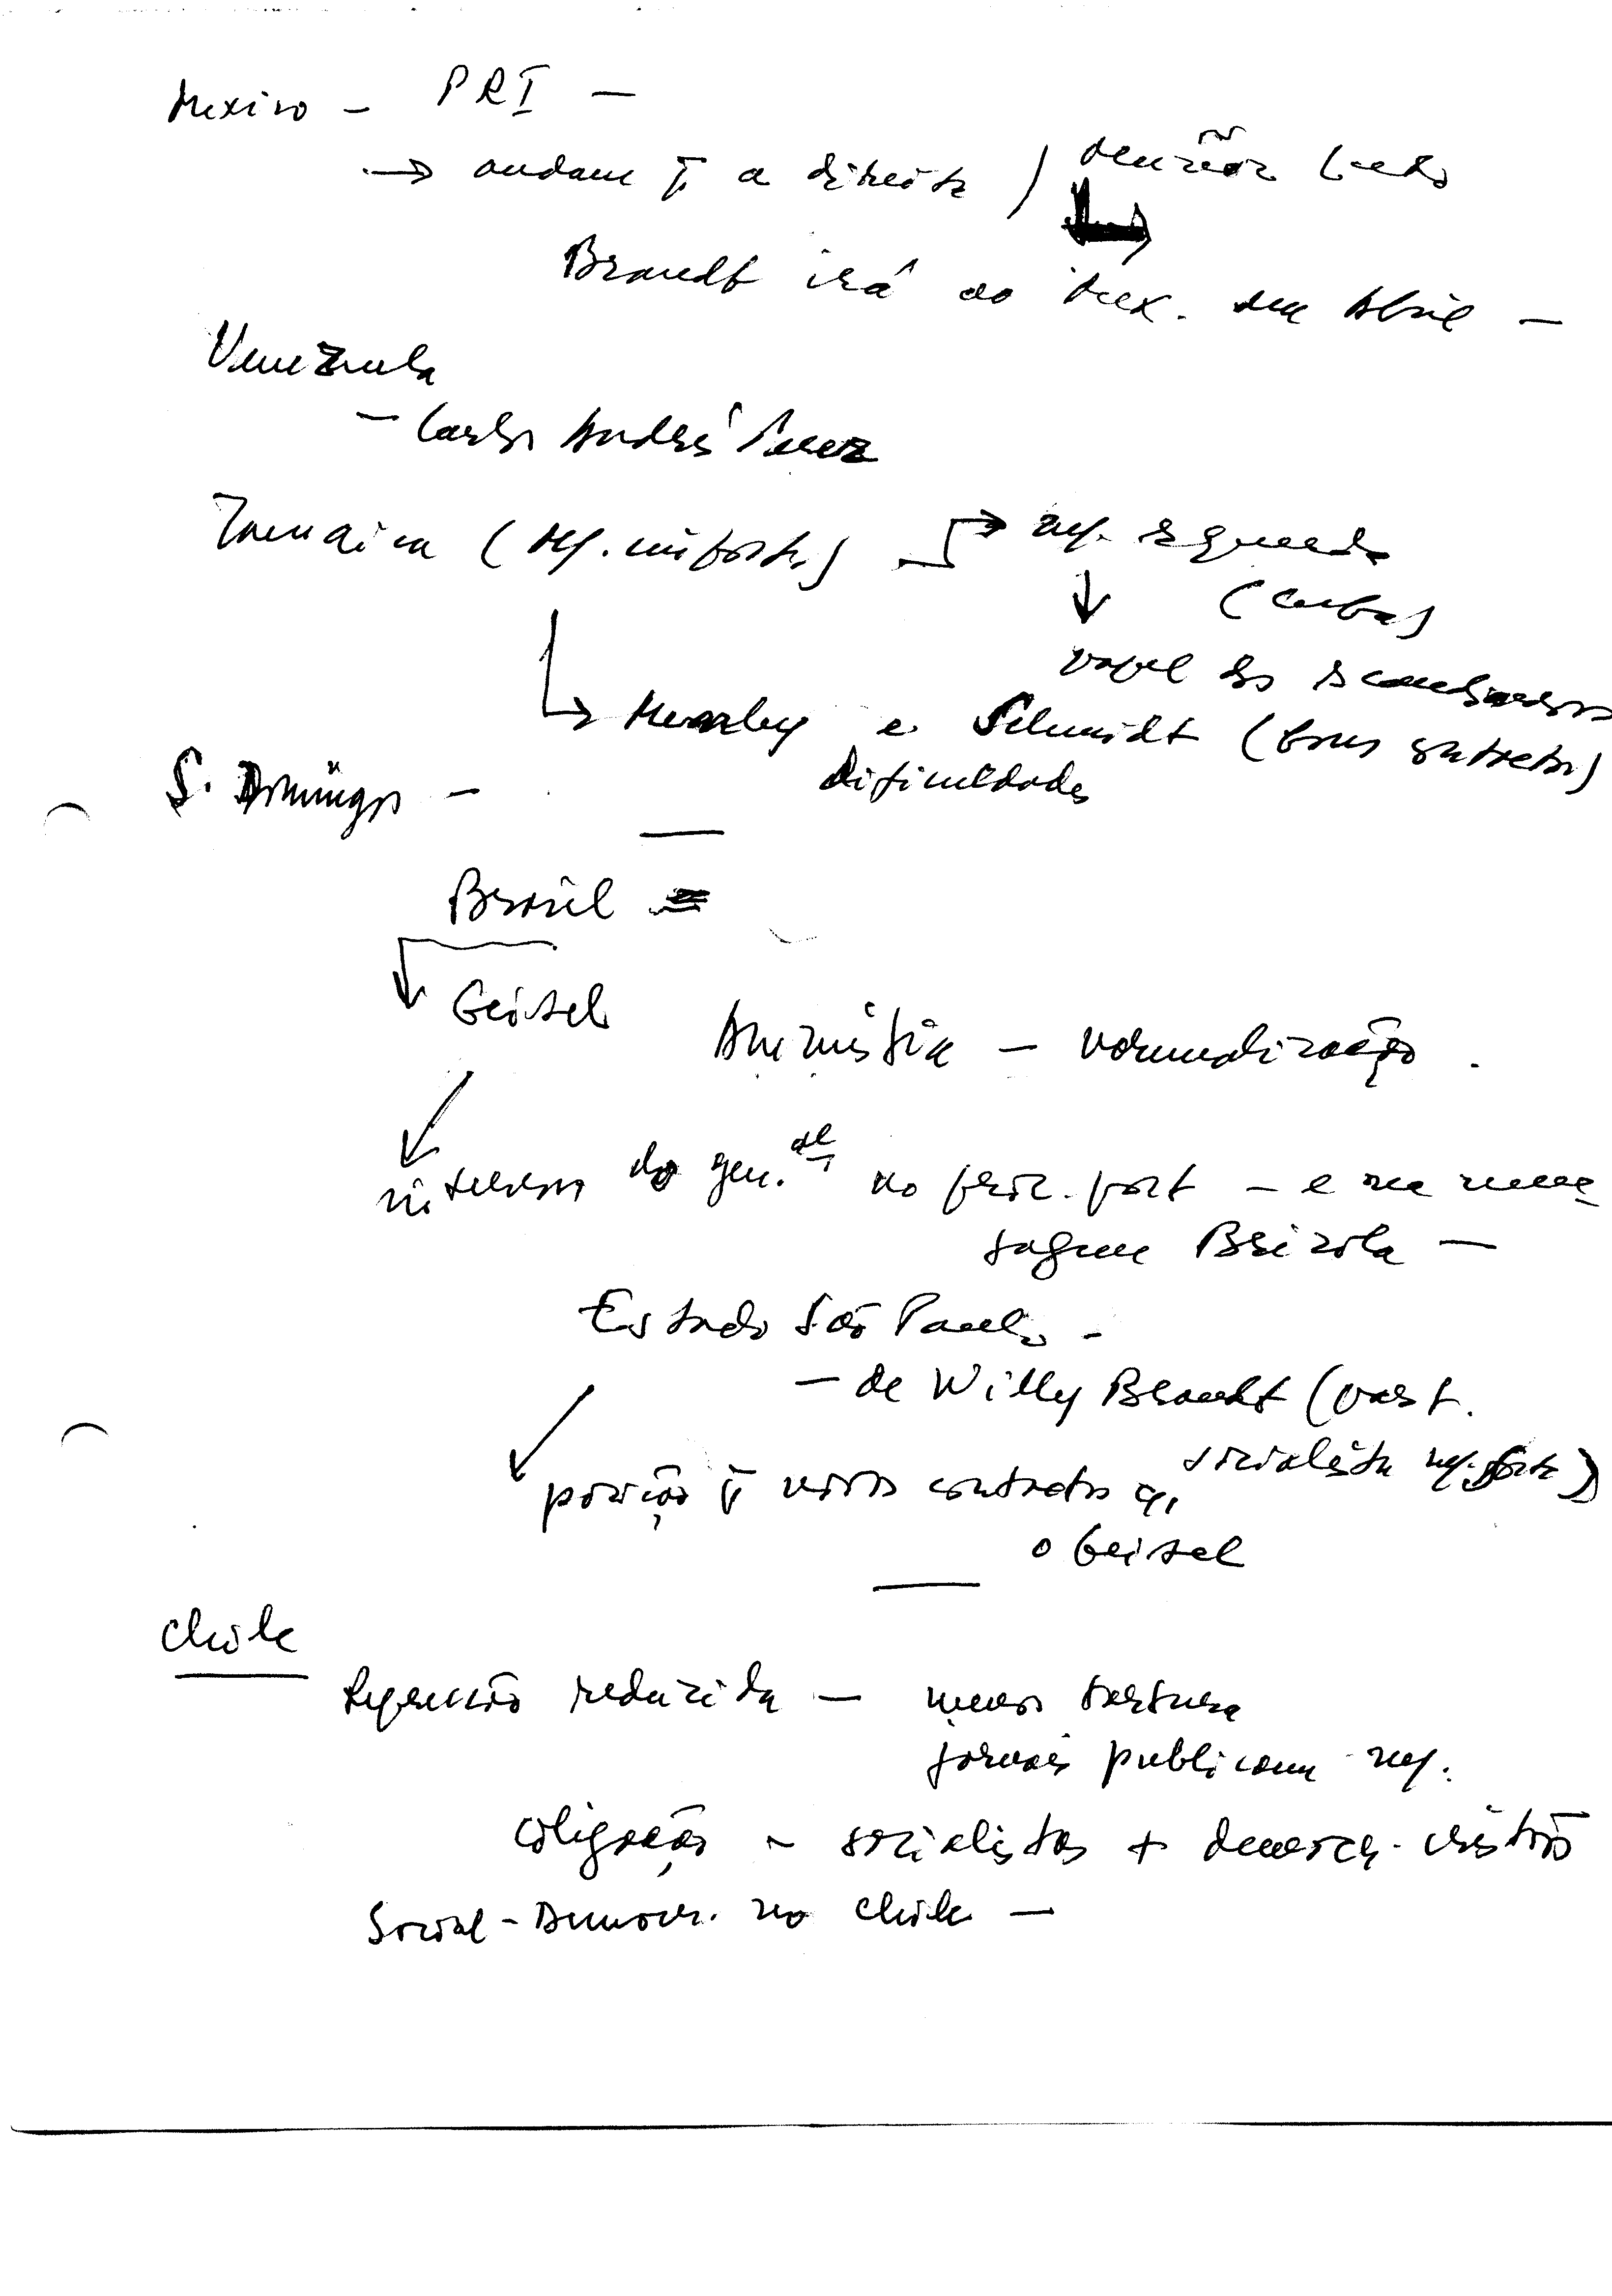 Mexico - PRI -
→ andam p. a direita / tensão
Brandt irá ao Mex. em Abril -
Venezuela
- Carlos Andrés Perez
Jamaica ( rep. importr.) → rep. esquerda
↓ (Cuba)
papel dos escandinavos
→ Manley e Schmidt (bons contactos)
dificuldades
S. Domingo -
Brasil =
Geisel
Amnistia - normalização.
interesse do gen. al no proc. port - e na men-
sagem Brizola -
Estado São Paulo -
- de Willy Brandt (part.
socialista rep. port.)
posição p. novos contactos c/
o Geisel
Chile
Repressão reduzida - menos tortura
jornais publicam rep.
coligação - socialistas + democr. cristãos
Social-Democr. no Chile -